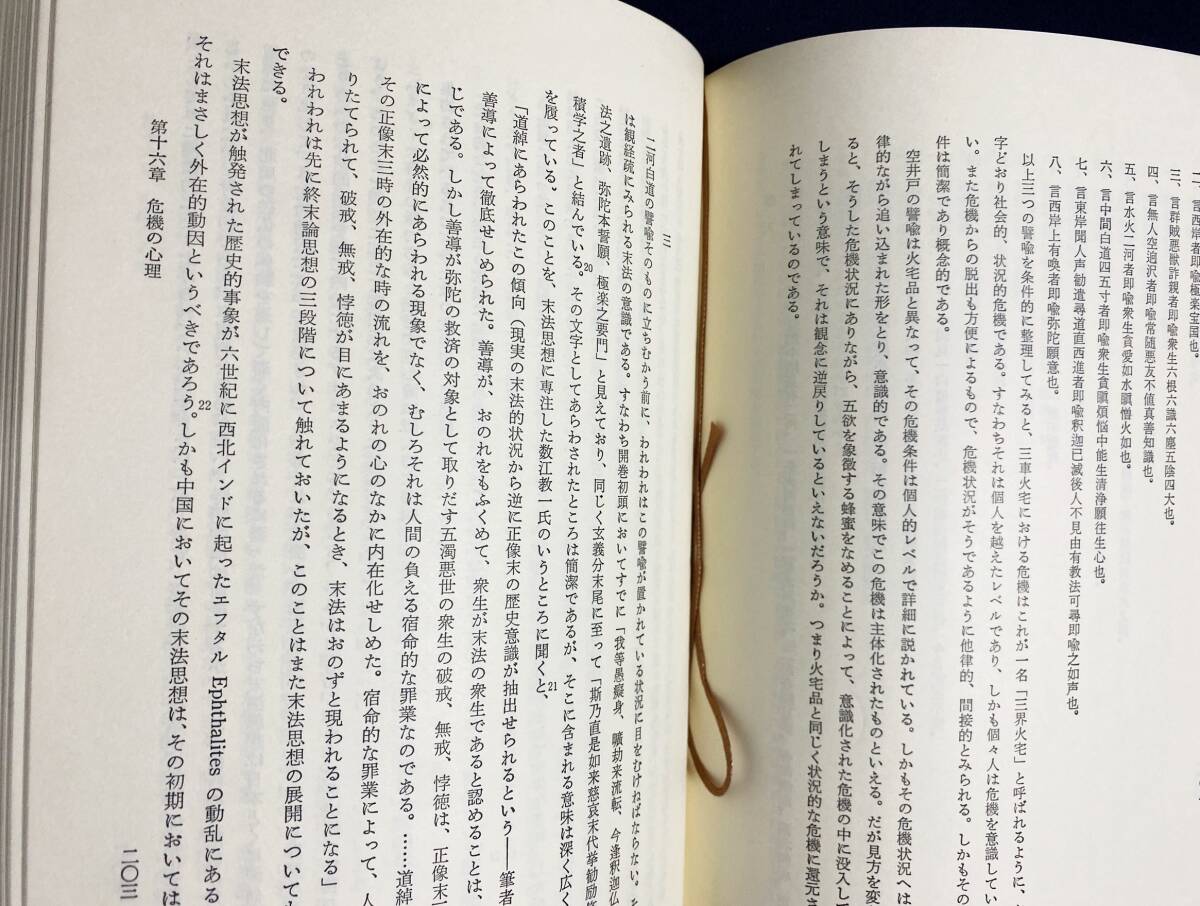 一、言西岸者即喩極楽宝国也。
三、言群賊悪獣詐親者即喩衆生六根六識六塵五陰四大也。
四、言無人空迥沢者即喩常随悪友不値真善知識也。
五、言水火二河者即喩衆生貪愛如水瞋憎火如也。
六、言中間白道四五寸者即喩衆生貪瞋煩悩中能生清浄願往生心也。
七、言東岸聞人声勧遣尋道直西進者即喩釈迦已滅後人不見由有教法可尋即喩之如声也。
八、言西岸上有喚者即喩弥陀願意也。
以上三つの譬喩を条件的に整理してみると、三車火宅における危機はこれが一名「三界火宅」と呼ばれるように、
字どおり社会的、状況的危機である。すなわちそれは個人を越えたレベルであり、しかも個々人は危機を意識してい
い。また危機からの脱出も方便によるもので、危機状況がそうであるように他律的、間接的とみられる。しかもその
件は簡潔であり概念的である。
空井戸の譬喩は火宅品と異なって、その危機条件は個人的レベルで詳細に説かれている。しかもその危機状況へは
律的ながら追い込まれた形をとり、意識的である。その意味でこの危機は主体化されたものといえる。だが見方を変
ると、そうした危機状況にありながら、五欲を象徴する蜂蜜をなめることによって、意識化された危機の中に没入して
しまうという意味で、それは観念に逆戻りしているといえないだろうか。つまり火宅品と同じく状況的な危機に還元さ
れてしまっているのである。
三
二河白道の譬喩そのものに立ちむかう前に、われわれはこの譬喩が置かれている状況に目をむけねばならない。そ
は観経疏にみられる末法の意識である。すなわち開巻初頭においてすでに「我等愚癡身、曠劫来流転、今逢釈迦仏
法之遺跡、弥陀本誓願、極楽之要門」と見えており、同じく玄義分末尾に至って「斯乃直是如来慈哀末代挙勧励
積学之者」と結んでいる。20その文字としてあらわされたところは簡潔であるが、そこに含まれる意味は深く広く
を履っている。このことを、末法思想に専注した数江教一氏のいうところに聞くと、21
「道綽にあらわれたこの傾向（現実の末法的状況から逆に正像末の歴史意識が抽出せられるという――筆者
善導によって徹底せしめられた。善導が、おのれをもふくめて、衆生が末法の衆生であると認めることは、
じである。しかし善導が弥陀の救済の対象として取りだす五濁悪世の衆生の破戒、無戒、悖徳は、正像末
によって必然的にあらわれる現象でなく、むしろそれは人間の負える宿命的な罪業なのである。……道綽
その正像末三時の外在的な時の流れを、おのれの心のなかに内在化せしめた。宿命的な罪業によって、人
りたてられて、破戒、無戒、悖徳が目にあまるようになるとき、末法はおのずと現われることになる」
われわれは先に終末論思想の三段階について触れておいたが、このことはまた末法思想の展開についても
できる。
末法思想が触発された歴史的事象が六世紀に西北インドに起ったエフタル Ephthalites の動乱にある
それはまさしく外在的動因というべきであろう。22しかも中国においてその末法思想は、その初期においては
第十六章　危機の心理
二〇三